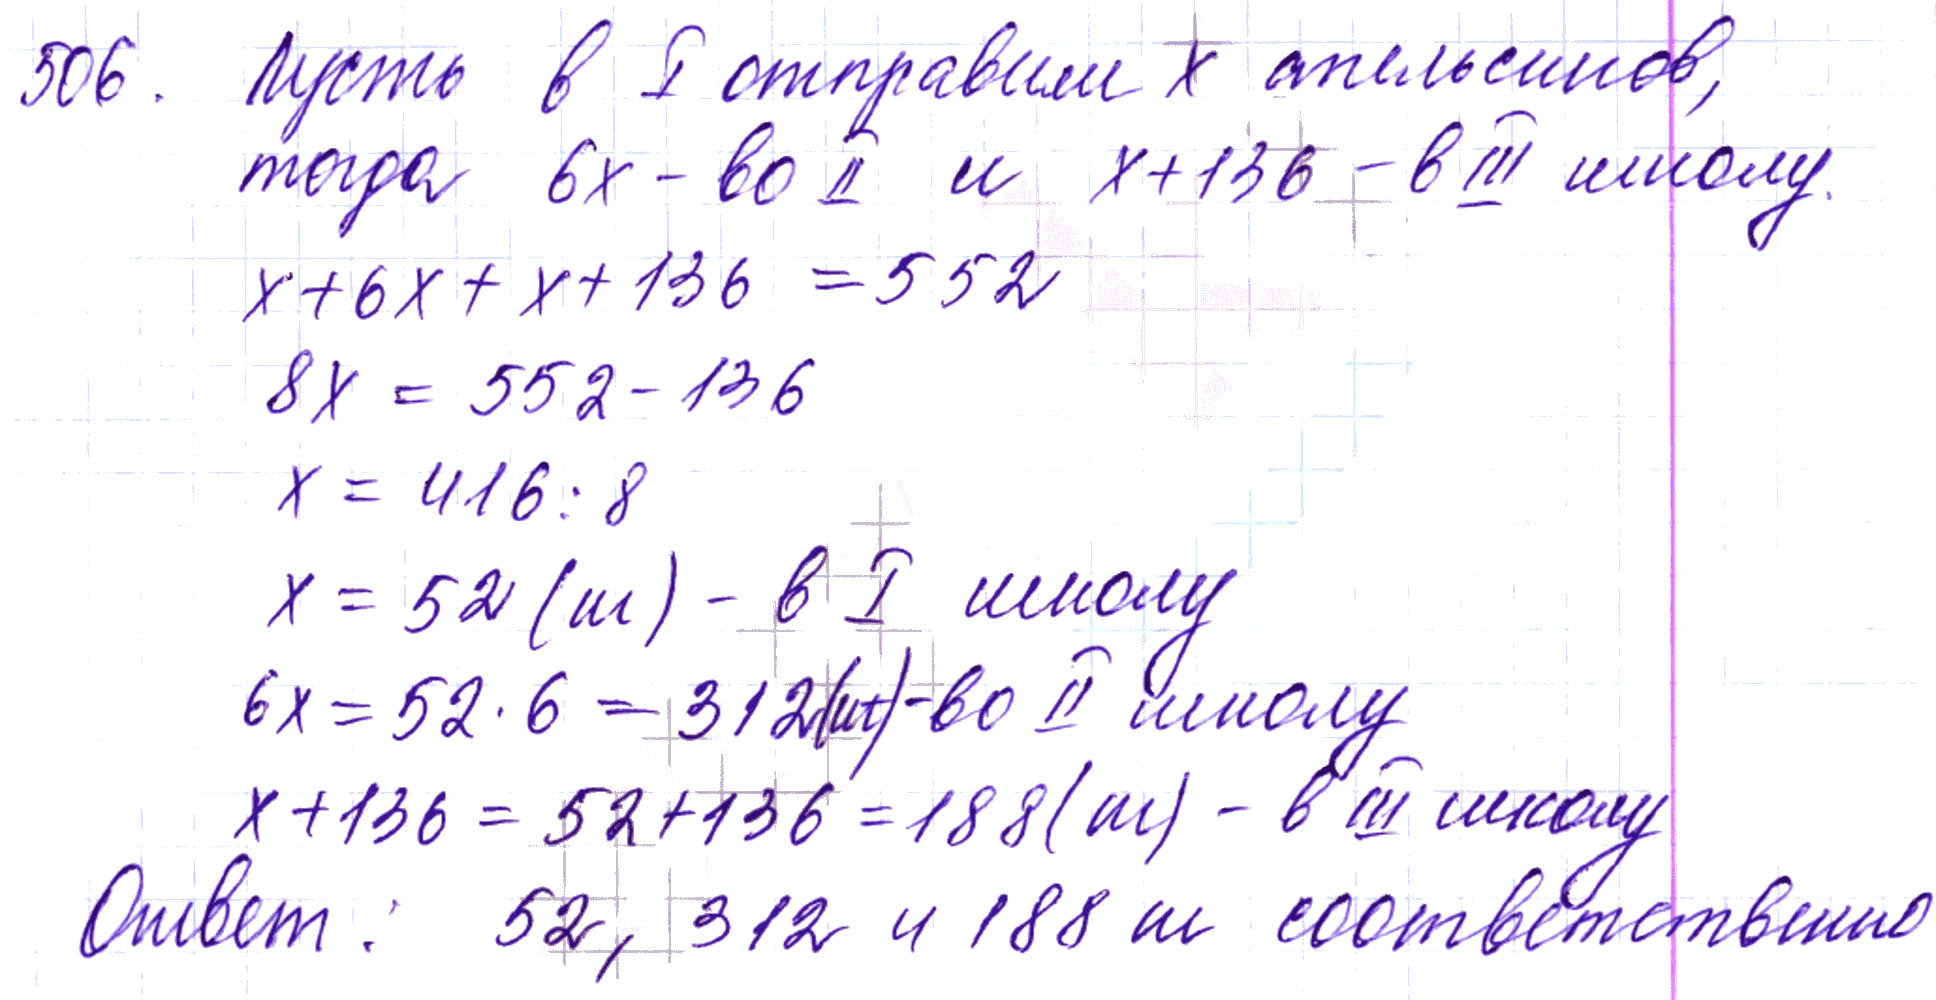 506. Пусть в I отправили x апельсинов,
тогда 6x – во II и x + 136 – в III школу.
x + 6x + x + 136 = 552
8x = 552 – 136
x = 416 : 8
x = 52 (ш) – в I школу
6x = 52 · 6 = 312 (шт) – во II школу
x + 136 = 52 + 136 = 188 (ш) – в III школу
Ответ: 52, 312 и 188 ш соответственно